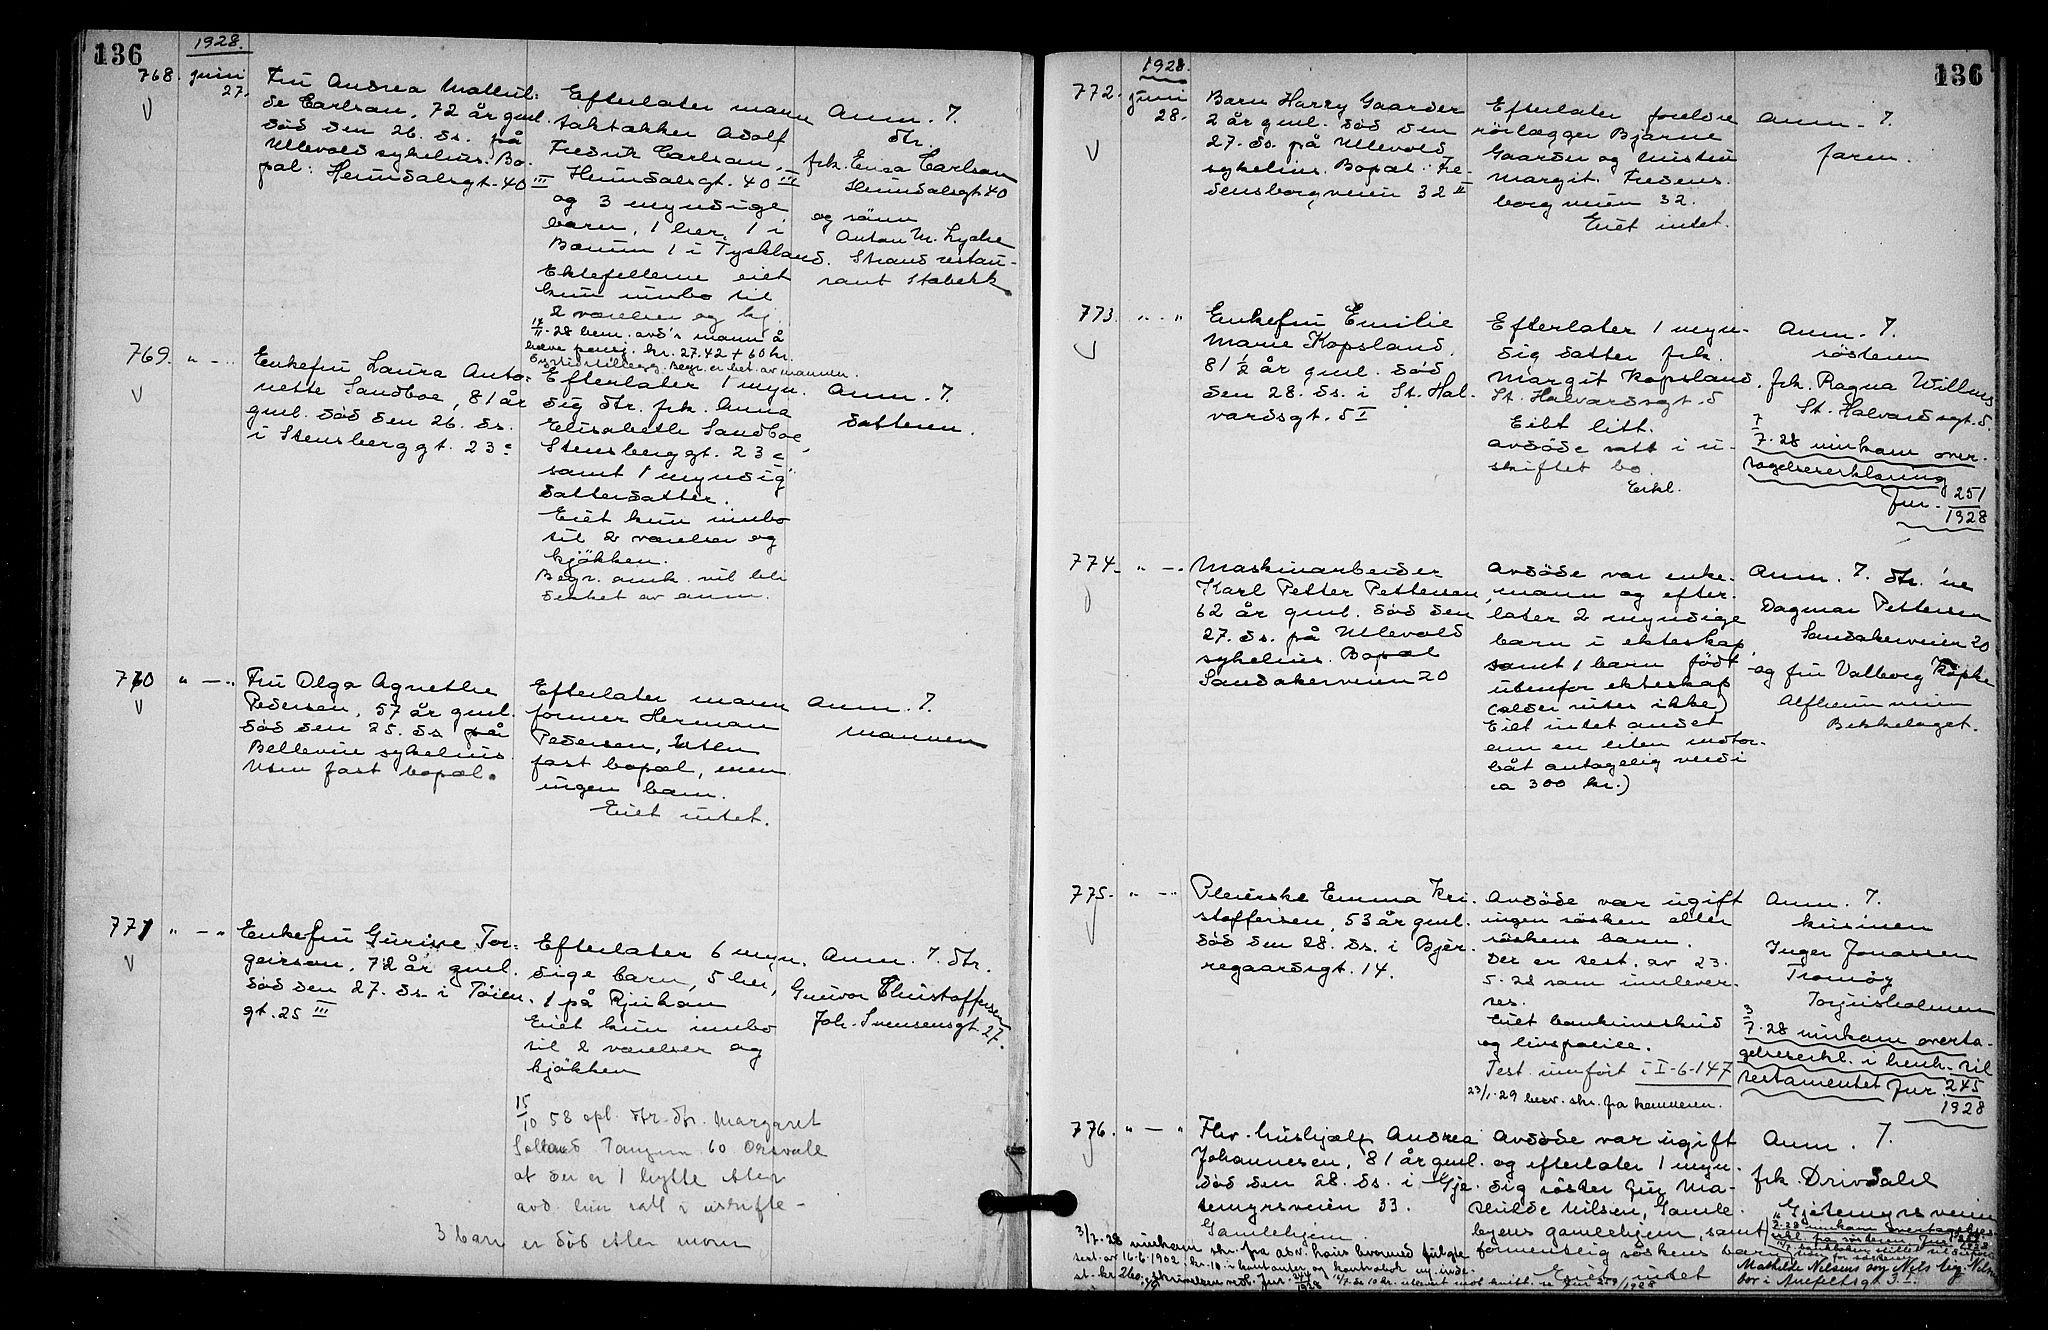 136
1928.
768. juni 27.
Fru Andrea Mathil-
de Carlsen, 72 år gml.
död den 26. ds. på
Ullevold sykehus. Bo-
pæl: Heimdalsgt. 40 III
Efterlater mann
taktækker Adolf
Fredrik Carlsen,
Heimdalsgt. 40 III
og 3 myndige
barn, 1 her, 1 i
Bærum 1 i Tyskland.
Ektefellene eiet
kun innbo til
2 værelser og kj.
28 bem. avd's mann å
heve pensj. kr. 27.42 + 60 kr.
Begr. er bet. av mannen.
Anm. 7.
dtr.
frk. Carlsen
Heimdalsgt 40
og sönn
Anton M. Lydie
Strand restau-
rant Stabekk.
769. " - "
Enkefru Laura Anto-
nette Sandboe, 81 år
gml. död den 26. ds.
i Stensberggt. 23 c
Efterlater 1 myn-
dig dtr. frk. Anna
Elisabeth Sandboe,
Stensberggt. 23 c,
samt 1 myndig
datterdatter.
Eiet kun innbo
til 2 værelser og
kjökken.
Begr. omk. vil bli
dekket av anm.
Anm. 7.
datteren.
770 " - "
Fru Olga Agnethe
Pedersen, 57 år gml.
död den 25. ds på
Bellevue sykehus.
Uten fast bopæl.
Efterlater mann
former Herman
Pedersen, uten
fast bopæl, men
ingen barn.
Eiet intet.
Anm. 7.
mannen
771 " - "
Enkefru Gurine Tor-
geirsen, 72 år gml.
död den 27. ds. i Töien-
gt. 25 III
Efterlater 6 myn-
dige barn, 5 her,
1 på Rjukan
Eiet kun innbo
til 2 værelser og
kjökken
15/10 58 opl. dtr. dtr. Margaret
Tangen 60
at der er 1 hytte etter
avd. hun satt i uskifte -
3 barn er död etter moren
Anm. 7. dtr.
Gunvor Christoffersen
Joh. Svensensgt. 27.
136
1928.
772. juni 28.
Barn Harry Gaarder
2 år gml. död den
27. ds. på Ullevold
sykehus. Bopæl: Fre-
densborgveien 32 II
Efterlater foreldre
rörlægger Bjarne
Gaarder og hustru
Margit. Fredens-
borgveien 32.
Eiet intet.
Anm. 7.
faren.
773. " - "
Enkefru Emilie
Marie Kopsland.
81 1/2 år gml. död
den 28. ds. i St. Hal-
vardsgt. 5 I
Efterlater 1 myn-
dig datter frk.
Margit Kopsland,
St. Halvardsgt. 5
Eiet litt.
avdöde satt i u-
skiftet bo.
Erkl.
Anm. 7.
söstern
frk. Ragna Willms
St. Halvardsgt. 5.
7/7-28 innkom over-
tagelseserklæring
Jnr. 251/1928
774. " - "
Maskinarbeider
Karl Petter Pettersen,
62 år gml. död den
27. ds. på Ullevold
sykehus. Bopæl
Sandakerveien 20
Avdöde var enke-
mann og efter-
later 2 myndige
barn i ekteskap,
samt 1 barn födt
utenfor ekteskap
(alder vites ikke)
Eiet intet andet
enn en liten motor-
båt antagelig verdi
ca 300 kr.)
Anm. 7. dtr.
Dagmar Pettersen
Sandakerveien 20
og fru Valborg Köpke
Alfheimveien
Bekkelaget.
775. " - "
Pleierske Emma Kri-
stoffersen, 53 år gml.
död den 28. ds. i Bjer-
regaardsgt. 14.
Avdöde var ugift
ingen sösken eller
söskens barn.
Der er test. av 23.
5.28 som innlever-
tes.
Eiet bankinnskud
og livspolice.
Test. innfört i I-6-147
23/1-29 besv. skr. fra kemneren.
Anm. 7.
kusinen
Inger Jonassen
Tromöy
Torjusholmen
3/7-28 innkom overta-
gelseserkl. i henh. til
testamentet Jnr. 245/1928
776. " - "
Fhv. hushjælp Andrea
Johannesen, 81 år gml.
död den 28. ds. i Gje-
temyrsveien 33.
Gamlehjem.
Avdöde var ugift
og efterlater 1 myn-
dig söster Ma-
thilde Nilsen, Gamle-
byens gamlehjem, samt
formentlig söskens barn
Eiet intet
Anm. 7.
frk. Drivdahl
Gjetemyrsveien
3/7-28 innkom skr. fra
test. av 16-6-1902. kr. 10 i kontanter og kontrabok
Mathilde Nilsens Nils
bor i Anefeltsgt 3. I.